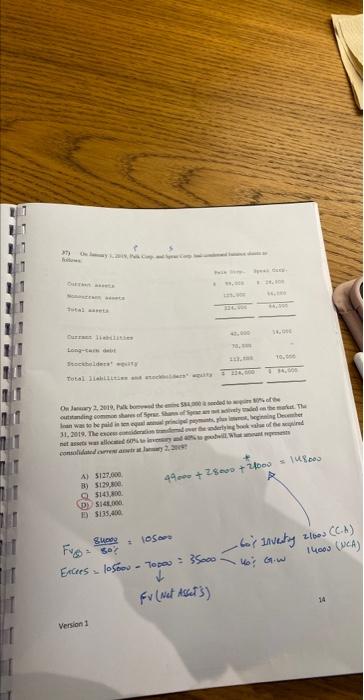 P S
37) On January 1, 2019, Palk Corp. and Spraz Corp. had condensed balance sheets as
follows:
Palk Corp. Spraz Corp.
Current assets $ 99,000 $ 28,000
Noncurrent assets 125,000 56,000
Total assets 224,000 84,000
Current liabilities 42,000 14,000
Long-term debt 70,000 -
Stockholders' equity 112,000 70,000
Total liabilities and stockholders' equity $ 224,000 $ 84,000
On January 2, 2019, Palk borrowed the entire $84,000 it needed to acquire 80% of the
outstanding common shares of Spraz. Shares of Spraz are not actively traded on the market. The
loan was to be paid in ten equal annual principal payments, plus interest, beginning December
31, 2019. The excess consideration transferred over the underlying book value of the acquired
net assets was allocated 60% to inventory and 40% to goodwill. What amount represents
consolidated current assets at January 2, 2019?
A) $127,000.
B) $129,800.
C) $143,800.
D) $148,000.
E) $135,400.
99000 + 28000 + 21000 = 148000
FV = 84000 / 80% = 105000
Excess = 105000 - 70000 = 35000
60% Inventy 21000 (C.A)
40% G.W 14000 (NCA)
FV (Net Assets)
14
Version 1